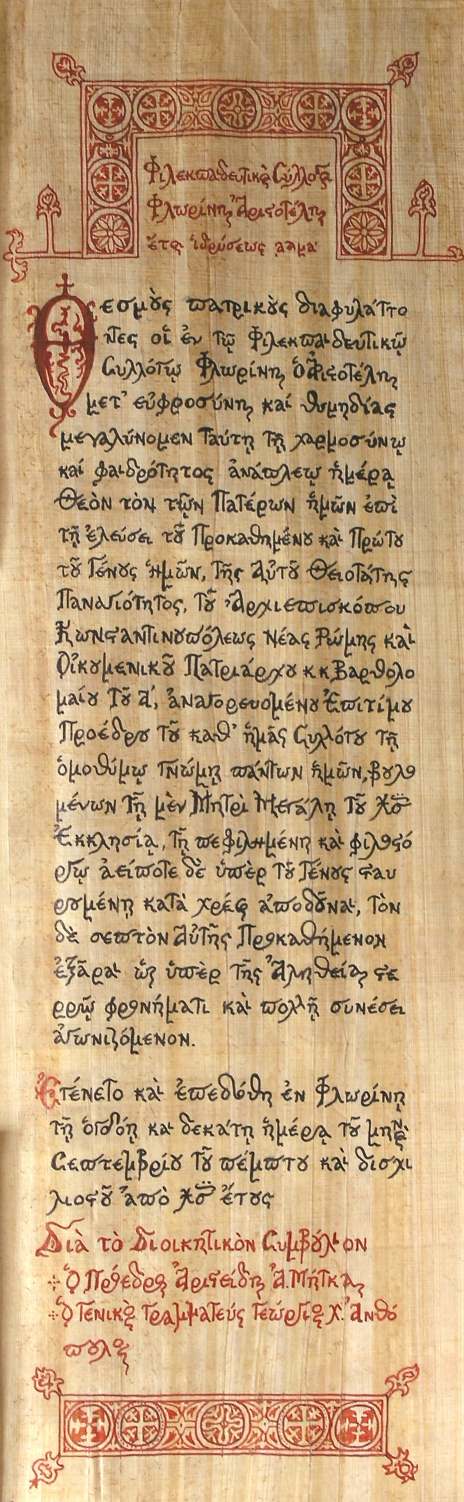 Φιλεκπαιδευτικὸς Σύλλογος
Φλωρίνης Ἀριστοτέλης
ἔτος ἱδρύσεως ͵αϡμα΄
Θεσμοὺς πατρικοὺς διαφυλάττο
ντες οἱ ἐν τῷ Φιλεκπαιδευτικῷ
Συλλόγῳ Φλωρίνης Ὁ Ἀριστοτέλης
μετ' εὐφροσύνης καί θυμηδίας
μεγαλύνομεν ταύτῃ τῇ χαρμοσύνῳ
καί φαιδρότητος ἀνάπλεῳ ἡμέρᾳ
Θεὸν τὸν τῶν Πατέρων ἡμῶν ἐπὶ
τῇ ἐλεύσει τοῦ Προκαθημένου καὶ Πρώτου
τοῦ Γένους ἡμῶν, Τῆς Αὐτοῦ Θειοτάτης
Παναγιότητος, Τοῦ Ἀρχιεπισκόπου
Κωνσταντινουπόλεως Νέας Ρώμης καὶ
Οἰκουμενικοῦ Πατριάρχου κ.κ. Βαρθολο
μαίου Τοῦ Α΄, ἀναγορευομένου Ἐπιτίμου
Προέδρου Τοῦ καθ' ἡμᾶς Συλλόγου τῇ
ὁμοθύμῳ γνώμῃ πάντων ἡμῶν, βουλο
μένων Τῇ μὲν Μητρὶ Μεγάλῃ Τοῦ Χοῦ
Ἐκκλησίᾳ, Τῇ πεφιλημένῃ καὶ φιλοστό
ργῳ ἀείποτε δὲ ὑπὲρ Τοῦ Γένους σταυ
ρουμένῃ κατὰ χρέος ἀποδοῦναι, Τὸν
δὲ σεπτὸν Αὐτῆς Προκαθήμενον
ἐξᾶραι ὡς ὑπὲρ Τῆς Ἀληθείας στε
ρρῷ φρονήματι καὶ πολλῇ συνέσει
ἀγωνιζόμενον.
Ἐγένετο καὶ ἐπεδόθη ἐν Φλωρίνῃ
τῇ ὀγδόῃ καὶ δεκάτῃ ἡμέρᾳ τοῦ μηνὸς
Σεπτεμβρίου Τοῦ πέμπτου καὶ δισχι
λιοστοῦ ἀπὸ Χοῦ ἔτους
Διὰ τὸ Διοικητικὸν Συμβούλιον
Ὁ Πρόεδρος Ἀριστείδης Ἀ. Μήγκας
Ὁ Γενικὸς Γραμματεύς Γεώργιος Χ. Ἀνθό
πουλος